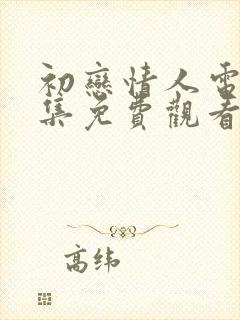 初戀情人電
集免費觀看
高纬